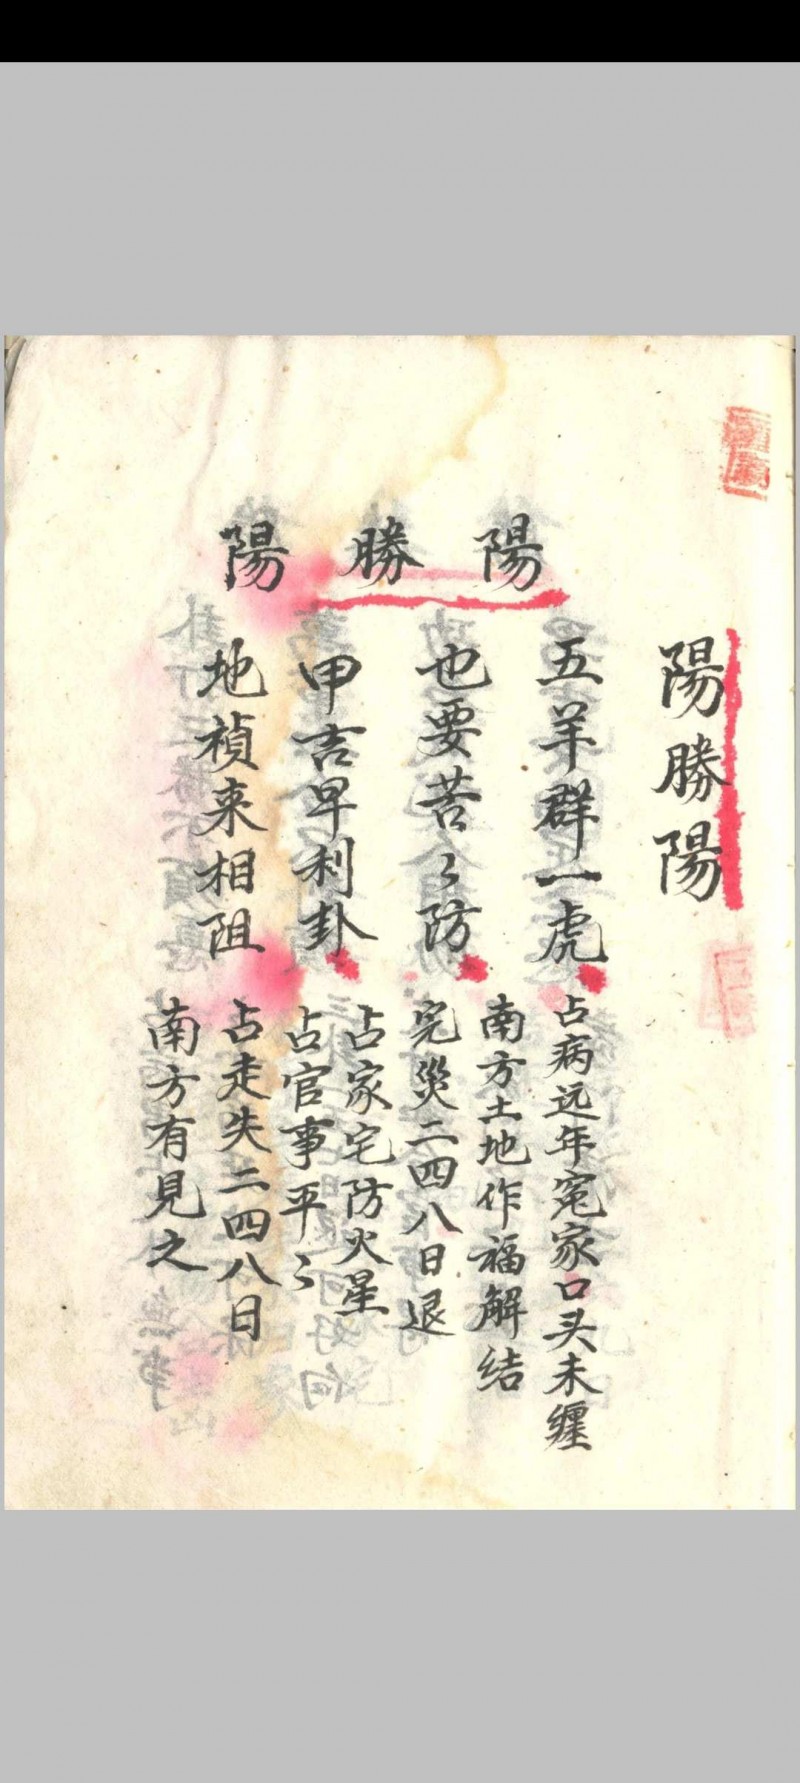 陽勝陽
陽勝陽
五羊群一虎
也要苦々防
甲吉早利卦
地禎来相阻
占病远年寃家口头未缠
南方土地作福解结
完災二四八日退
占家宅防火星
占官事平々
占走失二四八日
南方有見之